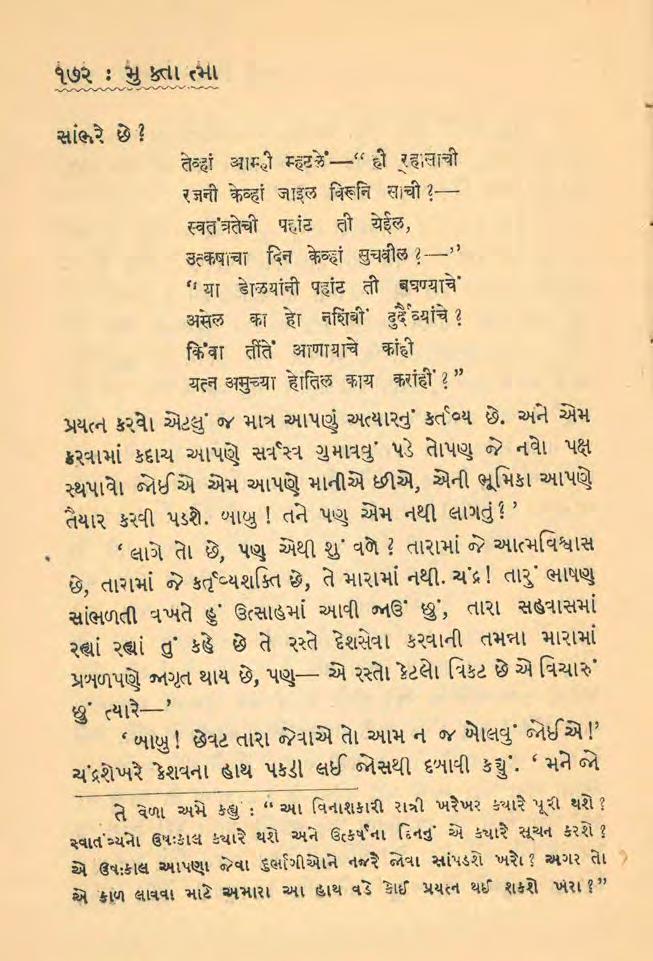 ૧૭૨ : મુ ક્તા ત્મા
સાંભરે છે?
तेव्हां आम्ही म्हटलें—“ ही र्‍हासाची
रजनी केव्हां जाइल विरूनि साची?—
स्वतंत्रतेची पहांट ती येईल,
उत्कर्षाचा दिन केव्हां सुचवील?—”
“या डोळयांनी पहांट ती बघण्याचें
असेल का हो नशिबीं दुर्दैव्यांचे?
किंवा तीतें आणायाचे कांही
यत्न अमुच्या होतिल काय करांहीं?”
પ્રયત્ન કરવો એટલું જ માત્ર આપણું અત્યારનું કર્તવ્ય છે. અને એમ
કરવામાં કદાચ આપણે સર્વસ્વ ગુમાવવું પડે તોપણ જે નવો પક્ષ
સ્થપાવો જોઈએ એમ આપણે માનીએ છીએ, એની ભૂમિકા આપણે
તૈયાર કરવી પડશે. બાબુ! તને પણ એમ નથી લાગતું?’
‘લાગે તો છે, પણ એથી શું વળે? તારામાં જે આત્મવિશ્વાસ
છે, તારામાં જે કર્તૃત્વશક્તિ છે, તે મારામાં નથી. ચંદ્ર! તારું ભાષણ
સાંભળતી વખતે હું ઉત્સાહમાં આવી જાઉં છું, તારા સહવાસમાં
રહ્યાં રહ્યાં તું કહે છે તે રસ્તે દેશસેવા કરવાની તમન્ના મારામાં
પ્રબળપણે જાગૃત થાય છે, પણ— એ રસ્તો કેટલો વિકટ છે એ વિચારું
છું ત્યારે—’
‘બાબુ! છેવટ તારા જેવાએ તો આમ ન જ બોલવું જોઈએ!’
ચંદ્રશેખરે કેશવના હાથ પકડી લઈ જોસથી દબાવી કહ્યું. ‘મને જો
તે વેળા અમે કહ્યું : “આ વિનાશકારી રાત્રી ખરેખર ક્યારે પૂરી થશે?
સ્વાતંત્ર્યનો ઉષઃકાલ ક્યારે થશે અને ઉત્કર્ષના દિનનું એ ક્યારે સૂચન કરશે?
એ ઉષઃકાલ આપણા જેવા દુર્ભાગીઓને નજરે જોવા સાંપડશે ખરો? અગર તો
એ કાળ લાવવા માટે અમારા આ હાથ વડે કોઈ પ્રયત્ન થઈ શકશે ખરા?”